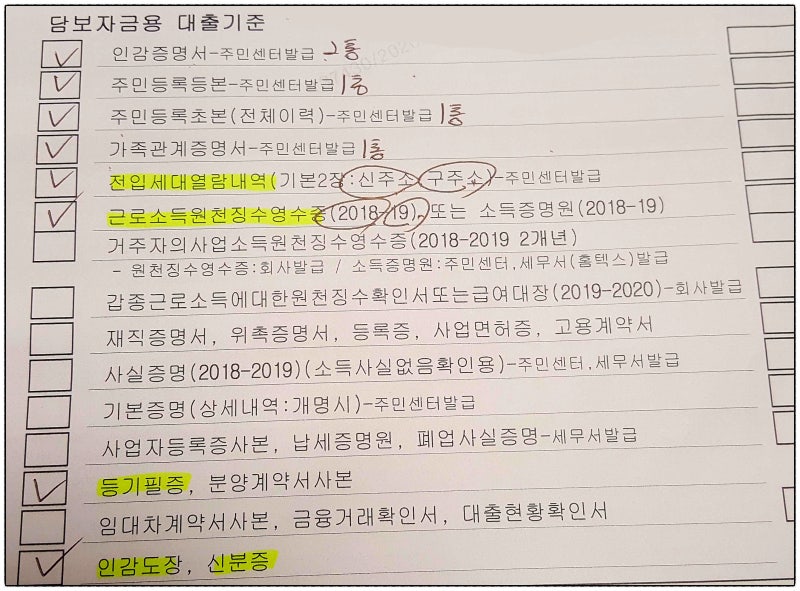 담보자금용 대출기준
인감증명서-주민센터발급 2통
주민등록등본-주민센터발급 1통
주민등록초본(전체이력)-주민센터발급 1통
가족관계증명서-주민센터발급 1통
전입세대열람내역(기본2장:신주소,구주소)-주민센터발급
근로소득원천징수영수증(2018-19), 또는 소득증명원(2018-19)
거주자의사업소득원천징수영수증(2018-2019 2개년)
- 원천징수영수증:회사발급 / 소득증명원:주민센터,세무서(홈텍스)발급
갑종근로소득에대한원천징수확인서또는급여대장(2019-2020)-회사발급
재직증명서, 위촉증명서, 등록증, 사업면허증, 고용계약서
사실증명(2018-2019)(소득사실없음확인용)-주민센터,세무서발급
기본증명(상세내역:개명시)-주민센터발급
사업자등록증사본, 납세증명원, 폐업사실증명-세무서발급
등기필증, 분양계약서사본
임대차계약서사본, 금융거래확인서, 대출현황확인서
인감도장, 신분증